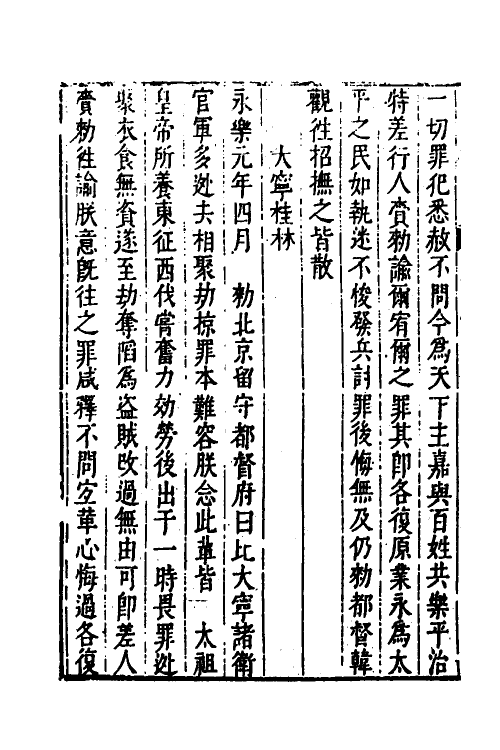 一切罪犯悉赦不問今爲天下主嘉與百姓共樂平治
特差行人賫勑諭爾宥爾之罪其卽各復原業永爲太
平之民如執迷不悛發兵討罪後悔無及仍勑都督韓
觀徃招撫之皆散
大寧桂林
永樂元年四月　勑北京留守都督府曰比大寧諸衛
官軍多逃去相聚劫掠罪本難容朕念此輩皆　太祖
皇帝所養東征西伐嘗奮力効勞後出于一時畏罪逃
聚衣食無資遂至劫奪陷爲盗賊改過無由可卽差人
賫勑徃諭朕意旣往之罪咸釋不問宜革心悔過各復